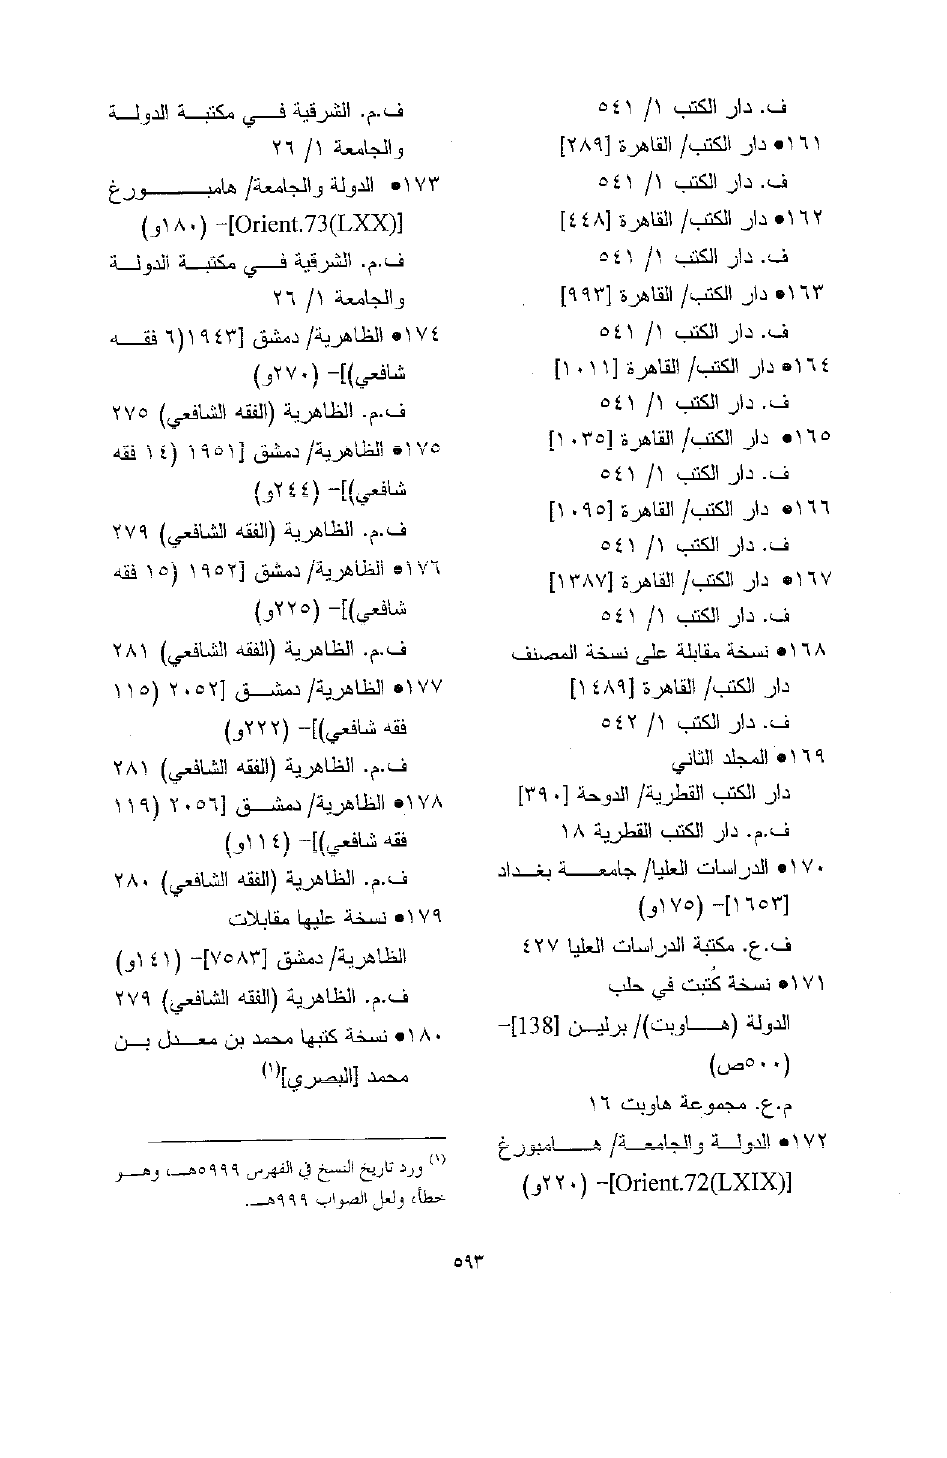 ف. دار الكتب ١/ ٥٤١
١٦١• دار الكتب/ القاهرة [٢٨٩]
ف. دار الكتب ١/ ٥٤١
١٦٢• دار الكتب/ القاهرة [٤٤٨]
ف. دار الكتب ١/ ٥٤١
١٦٣• دار الكتب/ القاهرة [٩٩٣]
ف. دار الكتب ١/ ٥٤١
١٦٤• دار الكتب/ القاهرة [١٠١١]
ف. دار الكتب ١/ ٥٤١
١٦٥• دار الكتب/ القاهرة [١٠٣٥]
ف. دار الكتب ١/ ٥٤١
١٦٦• دار الكتب/ القاهرة [١٠٩٥]
ف. دار الكتب ١/ ٥٤١
١٦٧• دار الكتب/ القاهرة [١٣٨٧]
ف. دار الكتب ١/ ٥٤١
١٦٨• نسخة مقابلة على نسخة المصنف
دار الكتب/ القاهرة [١٤٨٩]
ف. دار الكتب ١/ ٥٤٢
١٦٩• المجلد الثاني
دار الكتب القطرية/ الدوحة [٣٩٠]
ف.م. دار الكتب القطرية ١٨
١٧٠• الدراسات العليا/ جامعة بغداد
[١٦٥٣]– (١٧٥و)
ف.ع. مكتبة الدراسات العليا ٤٢٧
١٧١• نسخة كُتبت في حلب
الدولة (هاوبت)/ برلين [138]–
(٥٠٠ص)
م.ع. مجموعة هاوبت ١٦
١٧٢• الدولة والجامعة/ هامبورغ
[Orient.72(LXIX)]– (٢٢٠و)
ف.م. الشرقية في مكتبة الدولة
والجامعة ١/ ٢٦
١٧٣• الدولة والجامعة/ هامبورغ
[Orient.73(LXX)]– (١٨٠و)
ف.م. الشرقية في مكتبة الدولة
والجامعة ١/ ٢٦
١٧٤• الظاهرية/ دمشق [١٩٤٣(٦ فقه
شافعي)]– (٢٧٠و)
ف.م. الظاهرية (الفقه الشافعي) ٢٧٥
١٧٥• الظاهرية/ دمشق [١٩٥١ (١٤ فقه
شافعي)]– (٢٤٤و)
ف.م. الظاهرية (الفقه الشافعي) ٢٧٩
١٧٦• الظاهرية/ دمشق [١٩٥٢ (١٥ فقه
شافعي)]– (٢٢٥و)
ف.م. الظاهرية (الفقه الشافعي) ٢٨١
١٧٧• الظاهرية/ دمشق [٢٠٥٢ (١١٥
فقه شافعي)]– (٢٢٢و)
ف.م. الظاهرية (الفقه الشافعي) ٢٨١
١٧٨• الظاهرية/ دمشق [٢٠٥٦ (١١٩
فقه شافعي)]– (١١٤و)
ف.م. الظاهرية (الفقه الشافعي) ٢٨٠
١٧٩• نسخة عليها مقابلات
الظاهرية/ دمشق [٧٥٨٣]– (١٤١و)
ف.م. الظاهرية (الفقه الشافعي) ٢٧٩
١٨٠• نسخة كتبها محمد بن معدل بن
محمد [البصري](١)
(١) ورد تاريخ النسخ في الفهرس ٥٩٩٩هـ، وهو
خطأ، ولعل الصواب ٩٩٩هـ.
٥٩٣